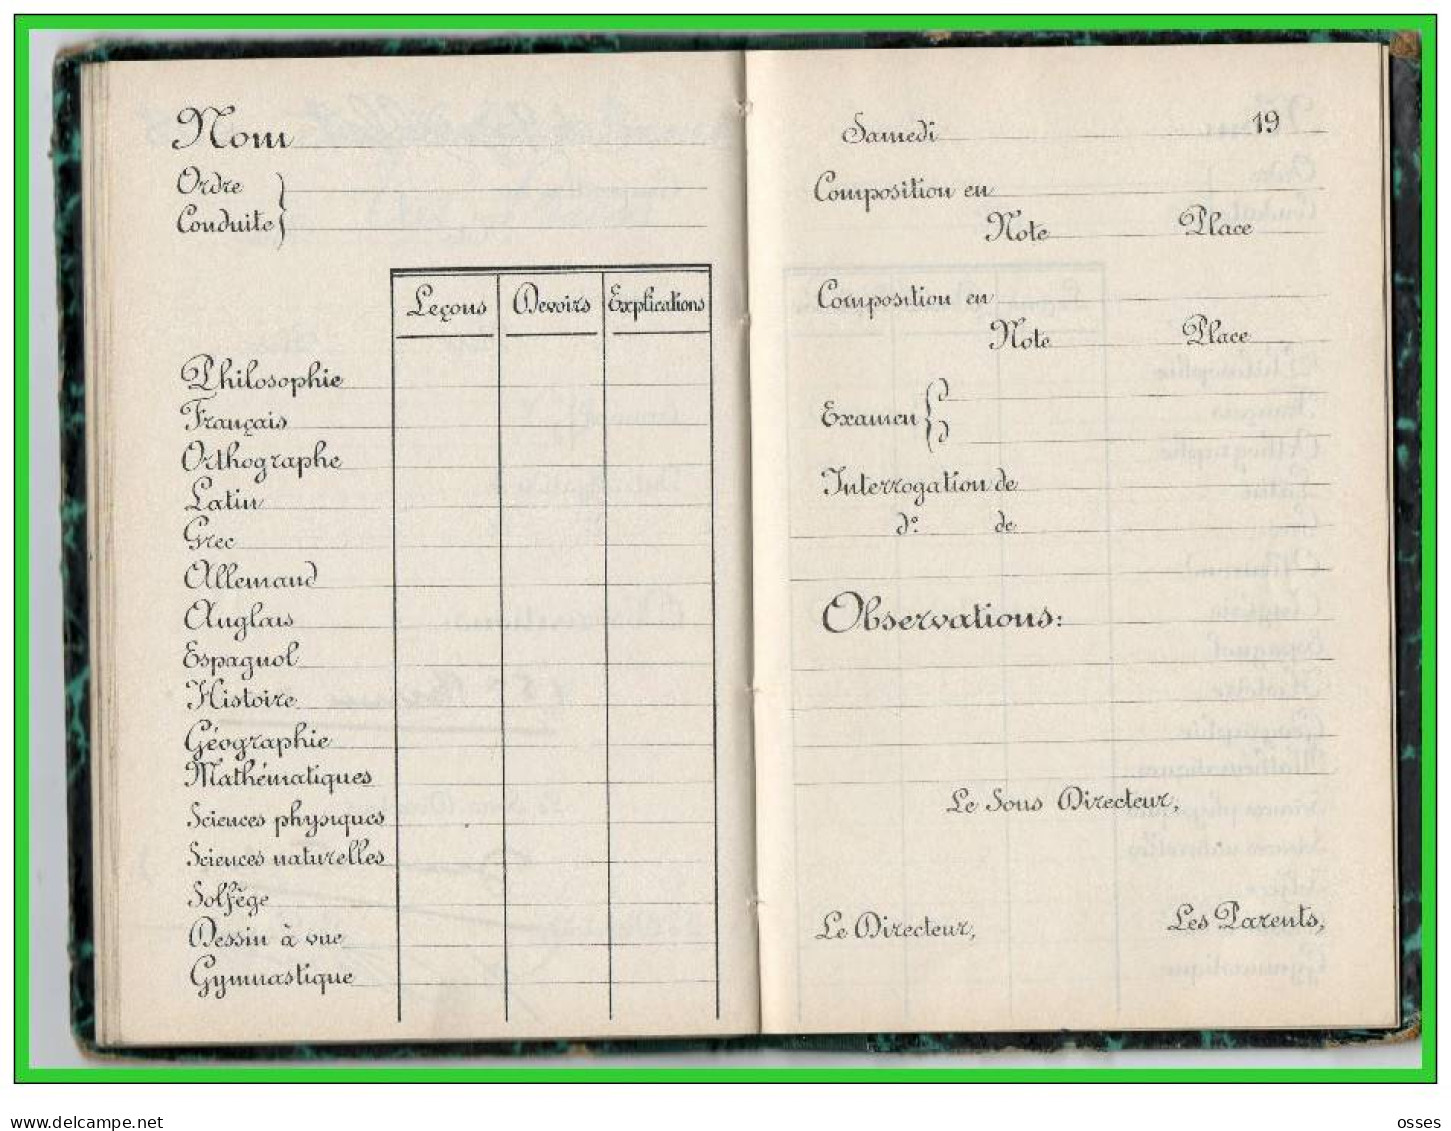 Nom
Ordre
Conduite
Leçons Devoirs Explications
Philosophie
Français
Orthographe
Latin
Grec
Allemand
Anglais
Espagnol
Histoire
Géographie
Mathématiques
Sciences physiques
Sciences naturelles
Solfège
Dessin à vue
Gymnastique
Samedi 19
Composition en
Note Place
Composition en
Note Place
Examen { d
d
Interrogation de
d°. de
Observations:
Le Sous Directeur,
Le Directeur, Les Parents,
www.delcampe.net osses